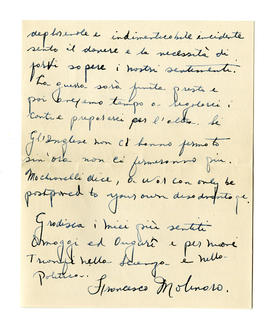 deplorevole e indimenticabile incidente
sento il dovere e la necessità di
farvi sapere i nostri sentimenti.
La guerra sarà finita presto e
poi avremo tempo a regolarci i
conti e prepararci per l'altra. Se
Gl'Inglese non ci hanno fermato
sin'ora non ci fermeranno più.
Machiavelli dice, a war can only be
postponed to your own disadvantage.
Gradisca i miei più sentiti
Omaggi ed Auguri e per nuovi
Trionfi nella Scienza e nella
Politica.
Francesco Molinaro.